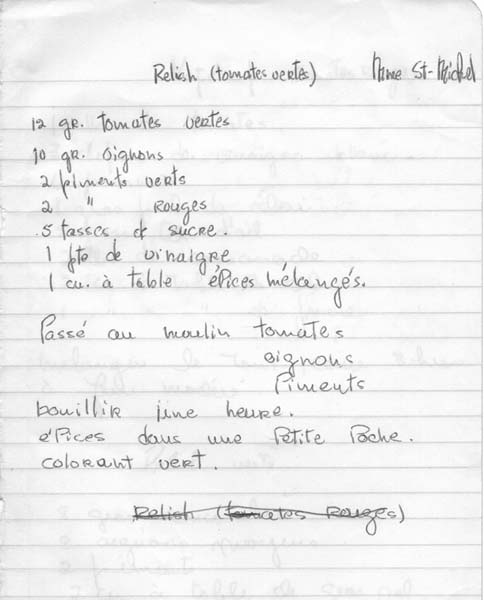 Relish (tomates vertes) Mme St-Michel
12 gr. tomates vertes
10 gr. oignons
2 piments verts
2 " rouges
.5 tasses de sucre.
1 pte de vinaigre
1 cu. à table épices mélangés.
Passé au moulin tomates
oignons
Piments
bouillir une heure.
épices dans une Petite Poche.
colorant vert.
Relish (tomates rouges)